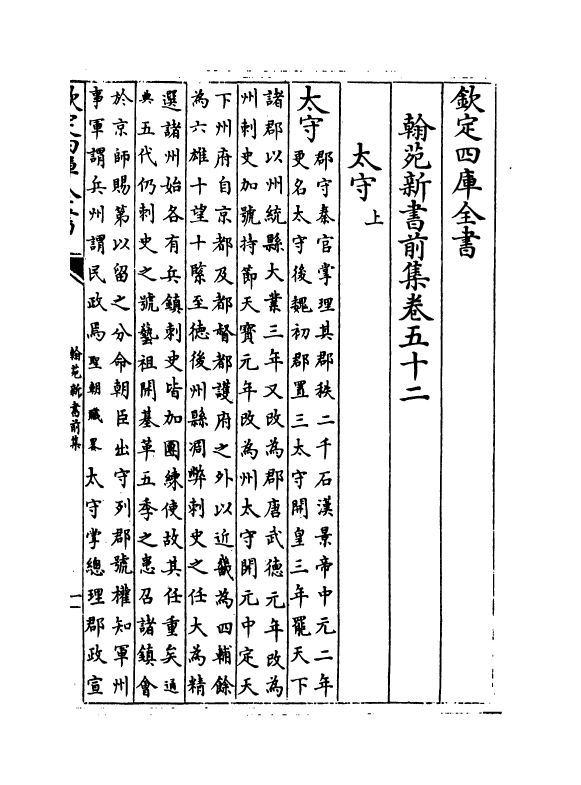 欽定四庫全書
翰苑新書前集卷五十二
太守上
太守郡守秦官掌理其郡秩二千石漢景帝中元二年
更名太守後魏初郡置三太守開皇三年罷天下
諸郡以州統縣大業三年又改為郡唐武德元年改為
州刺史加號持節天寳元年改為州太守開元中定天
下州府自京都及都督都護府之外以近畿為四輔餘
為六雄十望十緊至徳後州縣凋弊刺史之任大為精
選諸州始各有兵鎮刺史皆加團練使故其任重矣通
典五代仍刺史之號藝祖開基革五季之患召諸鎮會
於京師賜第以留之分命朝臣出守列郡號權知軍州
事軍謂兵州謂民政焉聖朝職畧太守掌總理郡政宣
欽定四庫全書
翰苑新書前集
一